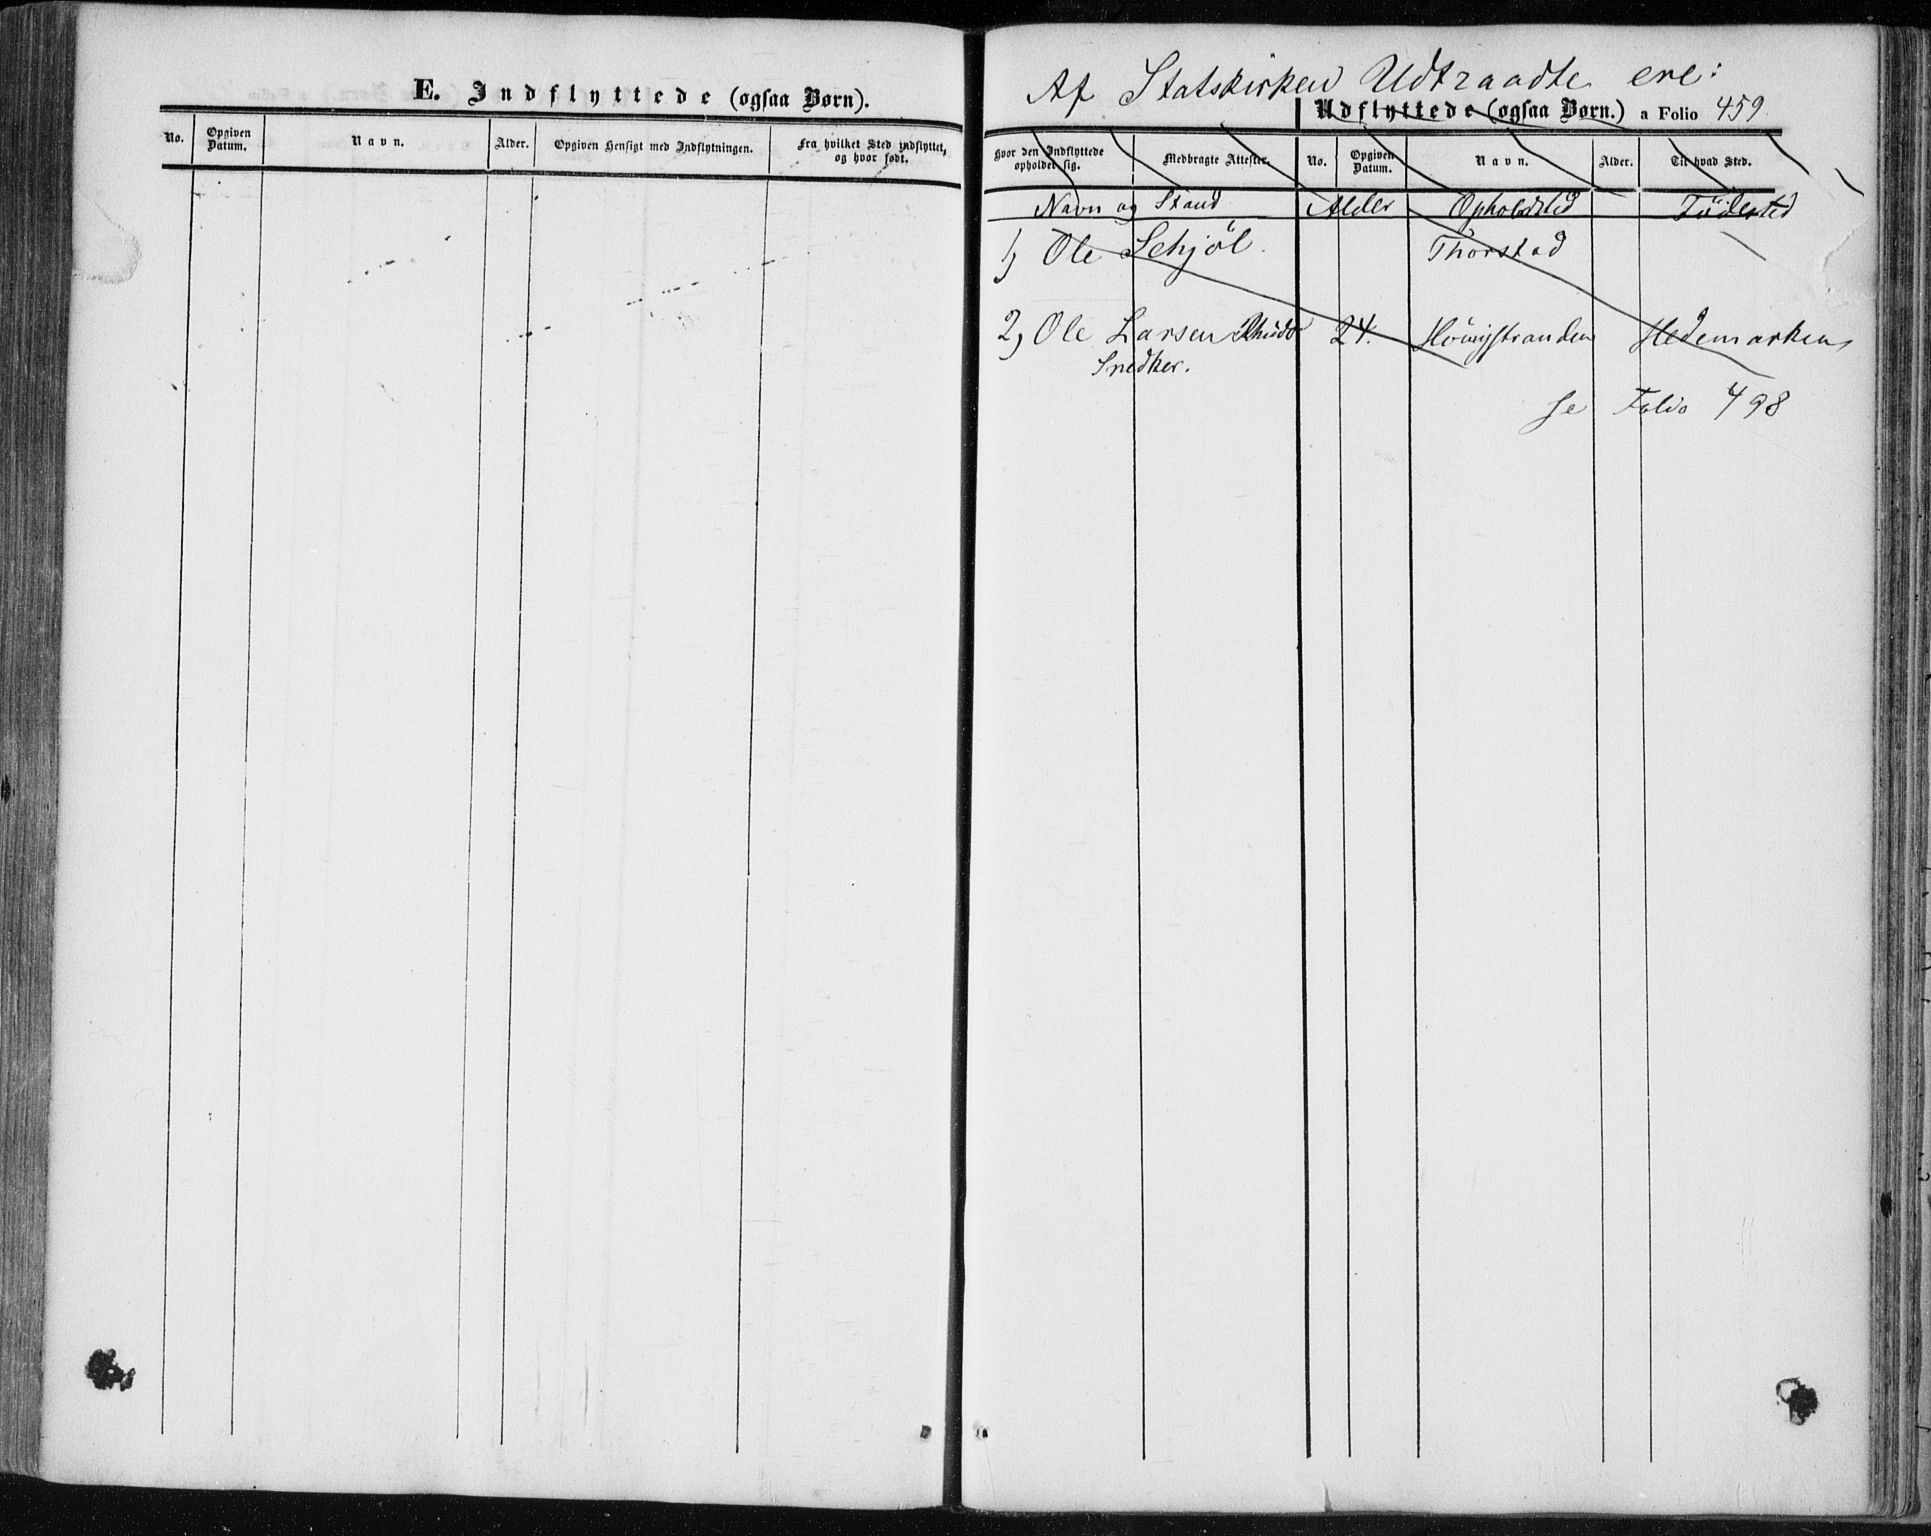 E. Indflyttede (ogsaa Børn).
No. Opgiven Datum. Navn. Alder. Opgiven Hensigt med Indflytningen. Fra hvilket Sted indflyttet, og hvor født.
Af Statskirken Udtraadte ere:
Udflyttede (ogsaa Børn.) a Folio 459
Hvor den Indflyttede opholder sig. Medbragte Attester. No. Opgiven Datum. Navn. Alder. Til hvad Sted.
Navn og Stand Alder Opholdsted Födested
1) Ole Schjöl. Thorstad
2) Ole Larsen 24. Hedemarken
Snedker.
se Folio 498